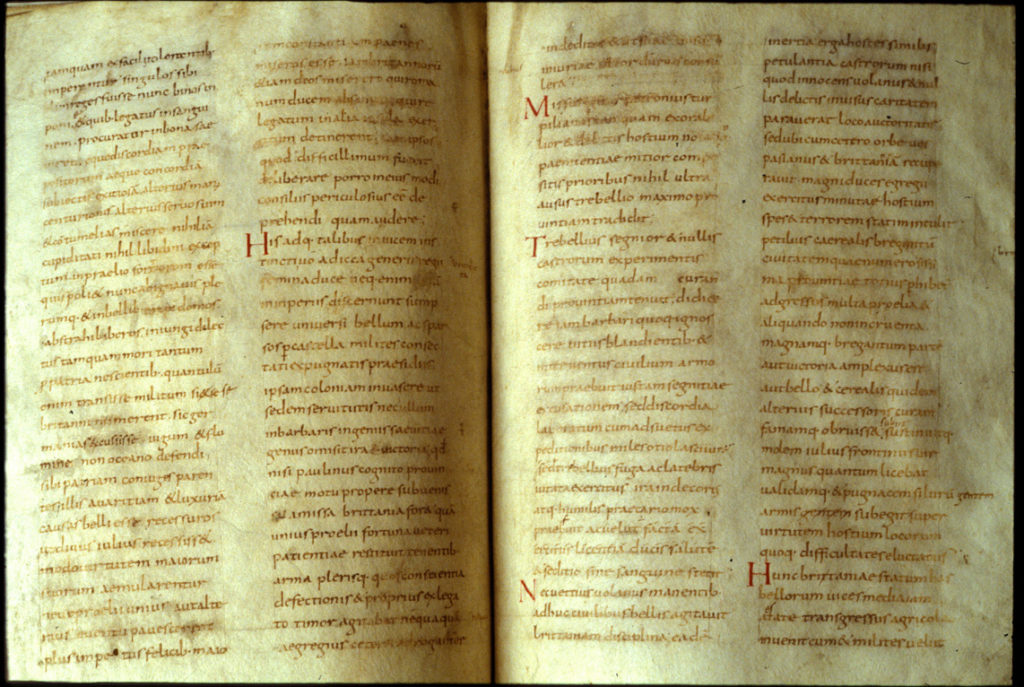 tamquam ex facili tolerentib;
imperantur singulos sibi
reges fuisse nunc binos
poni & quib; legatus in sangui
nem procurator in bona sae
uiret. aeque discordiam prae
positorum aeque concordia
subiectis exitiosa alterius manus
centuriones alterius seruos uim
& contumelias miscere nihil iā
cupiditati nihil libidini excep
tum in praelio fortiorem esse
qui spoli& nunc ab ignauis ple
rumq; & inbellib; eripi domos
abstrahi liberos iniungi dilec
tus tamquam mori tantum
p patria nescientib; quantulū
enim transisse militum si sese
britanni numerent. sic ger
manias excussisse iugum & flu
mine non oceano defendi
sibi patriam coniuges paren
tes illis auaritiam & luxuria
causas belli esse recessuros
ut diuus iulius recessiss&
modo uirtutem maiorum
suorum aemularentur
neue proelii unius aut alte
rius euentu pauescerent
plus impetus felicib; maio
rem constantiam penes
miseros esse iam britannorū
&iam deos misereri qui roma
num ducem absentem qui re
legatum in alia insula exer
citum detinerent iam ipsos
quod difficillimum fuerit
deliberare porro in eius modi
consiliis periculosius eē de
prehendi quam audere;
His adq; talibus inuicem ins
tincti uoadicca generis regii
femina duce neq; enim sexū
in imperiis discernunt sump
sere uniuersi bellum ac spar
sos p castella milites consec
tati expugnatis praesidiis
ipsam coloniam inuasere ut
sedem seruitutis nec ullum
in barbaris ingeniis saeuitiae
genus omisit ira & uictoria qđ
nisi paulinus cognito prouin
ciae motu propere subuenis
s& amissa brittania fora quā
unius proelii fortuna ueteri
patientiae restituit tenentib;
arma plerisq; quos conscientia
defectionis & proprius ex lega
to timor agitabat ne quaquā
egregius cetera arroganter
in deditos & ut suae cuiusq;
iniuriae ultor durius consu
ler&
Missus igitur petronius tur
pilianus tamquam exorabi
lior & delictis hostium nouus
paenitentiae mitior compo
sitis prioribus nihil ultra
ausus trebellio maximo pro
uintiam tradidit;
Trebellius segnior & nullis
castrorum experimentis
comitate quadam curan
di prouintiam tenuit; didice
re iam barbari quoq; ignos
cere uitiis blandientib; &
interuentus ciuilium armo
rum praebuit iustam segnitiae
excusationem. sed discordia
laboratum cum adsuetus ex
peditionibus miles otio lasciuir&
trebellius fuga ac latebris
uitata exercitus ira indecoris
atq; humilis praecario mox
praefuit ac uelut pacta ex
ercitus licentia ducis salute
& seditio sine sanguine stetit
Nec uettius uolanus manentib;
adhuc ciuilibus bellis agitauit
brittaniam disciplina eadē
inertia erga hostes similis
petulantia castrorum nisi
quod innocens uolanus & nul
lis delictis inuisus caritatem
parauerat loco auctoritatis
sed ubi cum cetero orbe ues
pasianus & brittaniā recupe
rauit magni duces egregii
exercitus minuta hostium
spes & terrorem statim intulit
petilius caerealis brigantū
ciuitatem quae numerosissi
ma prouintiae totius phibe&
adgressus multa proelia &
aliquando non incruenta
magnamq; brigantum parte
aut uictoria amplexus ē
aut bello & cerealis quidem
alterius successoris curam
famamq; obruiss& sustinuitq;
molem iulius frontinus uir
magnus quantum liceba&
ualidamq; & pugnacem silurū gentem
armis gentem subegit super
uirtutem hostium locorum
quoq; difficultates eluctatus
Hunc brittaniae statum has
bellorum uices media iam
aestate transgressus agricola
inuenit cum & milites uelut